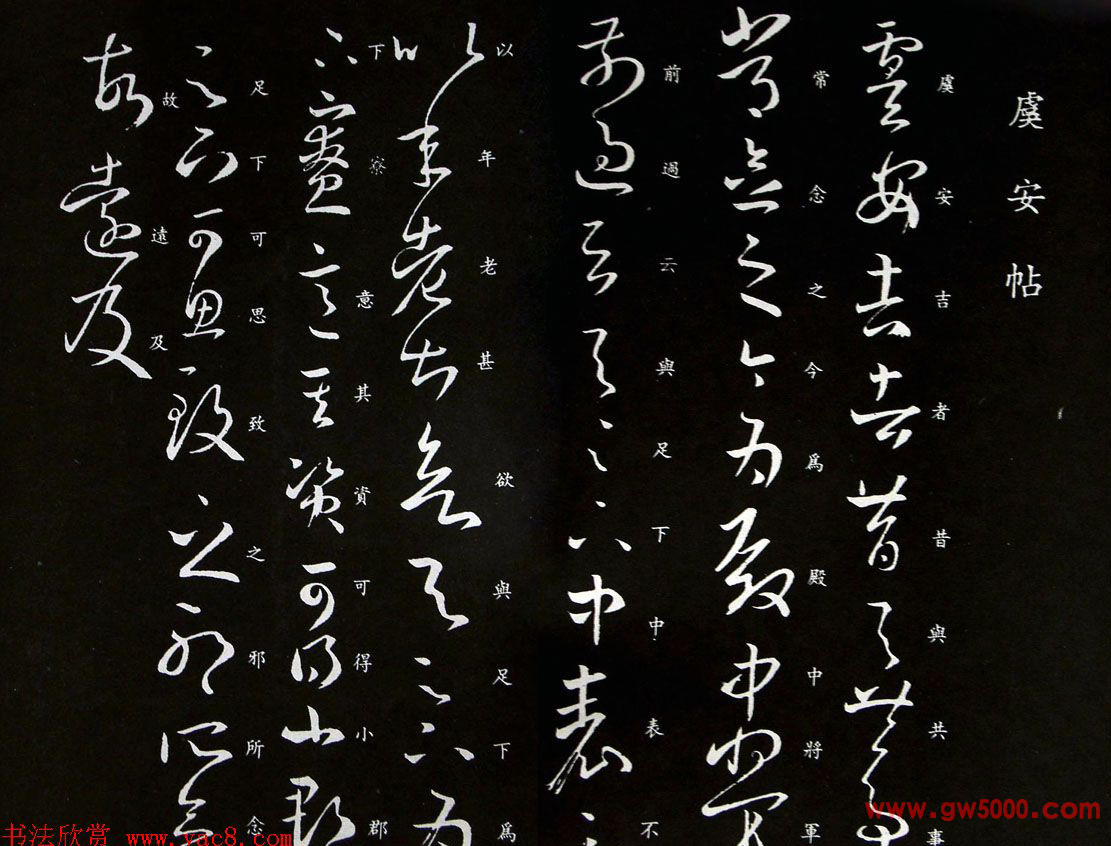 虞安帖
虞安吉者昔與共事
常念之今爲殿中將軍
前過云與足下中表不
以年老甚欲與足下爲
下寮意其資可得小郡
足下可思致之邪所念
故遠及
www.gw5000.com
书法欣赏 www.yac8.com